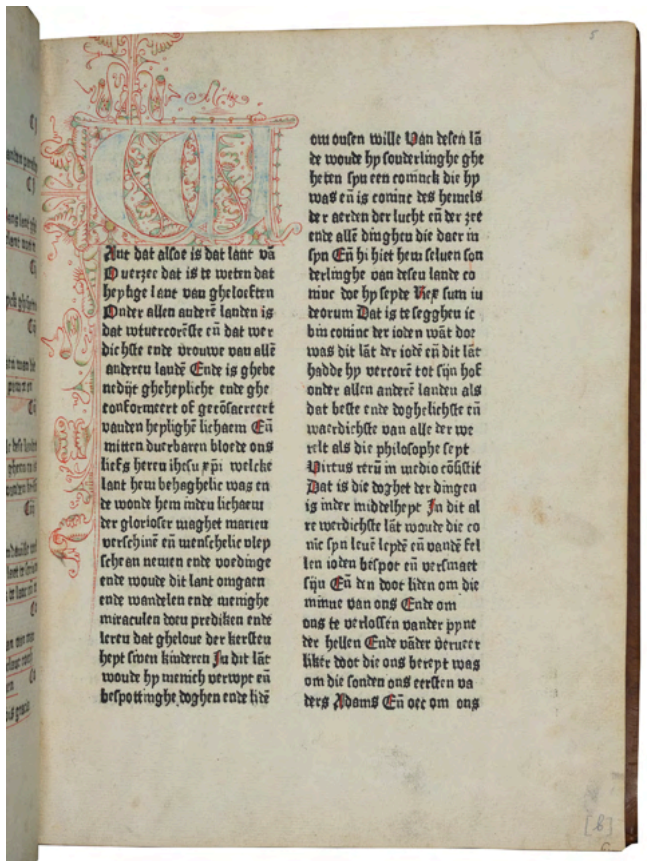 5
Ant dat alsoe is dat lant vā
Ouerzee dat is te weten dat
heylige lant van gheloeften
Onder allen anderē landen is
dat wtuercorēste eñ dat wer
dichste ende vrouwe van allē
anderen landē Ende is ghebe
nedijt gheheylicht ende ghe
conformeert of gecōsacreert
vanden heylighē lichaem Eñ
mitten duerbaren bloede ons
liefs heren ihesu xpi welcke
lant hem behaghelic was en
de woude hem inden lichaem
der glorioser maghet marien
verschinē eñ menschelic vley
sche an nemen ende voedinge
ende woude dit lant omgaen
ende wandelen ende menighe
miraculen doen prediken ende
leren dat gheloue der kersten
heyt sinen kinderen In dit lāt
woude hy menich verwyt eñ
bespottinghe doghen ende lidē
om onsen wille Van desen lā
de woude hy souderlinghe ghe
heten syn een coninck die hy
was eñ is coninc des hemels
der aerden der lucht eñ der zee
ende allē dinghen die daer in
syn Eñ hi hiet hem seluen son
derlinghe van desen lande co
ninc doe hy seyde Rex sum iu
deorum Dat is te segghen ic
bin coninc der ioden wāt doe
was dit lāt der iodē eñ dit lāt
hadde hy vercorē tot sijn hof
onder allen anderē landen als
dat beste ende doghelichste eñ
waerdichste van alle der we
relt als die philosophe seyt
Virtus rerū in medio cōsistit
Dat is die doghet der dingen
is inder middelheyt In dit al
re werdichste lāt woude die co
nic syn leuē leydē eñ vandē fel
len ioden bespot eñ versmaet
sijn Eñ den doot liden om die
minne van ons Ende om
ons te verlossen vander pyne
der hellen Ende vāder veruaer
liker doot die ons bereyt was
om die sonden ons eersten va
ders Adams Eñ oec om ons
[b]